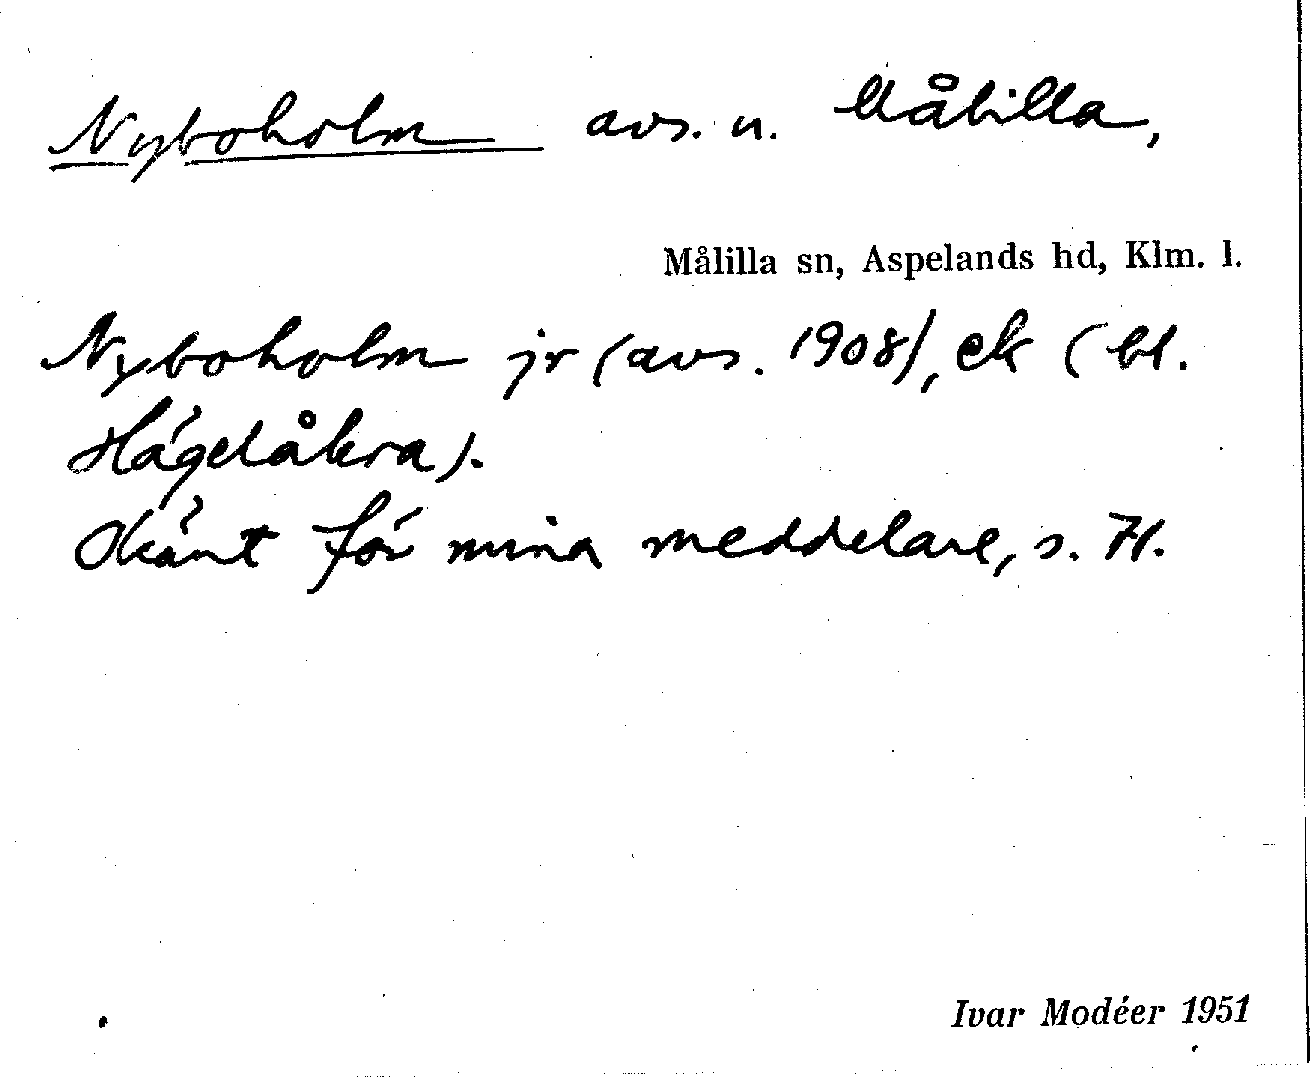 Nyboholm avs. u. Målilla,
Målilla sn, Aspelands hd, Klm. l.
Nyboholm jr (avs. 1908), ek (bl.
Hägelåkra).
Okänt för mina meddelare, s. H.
Ivar Modéer 1951